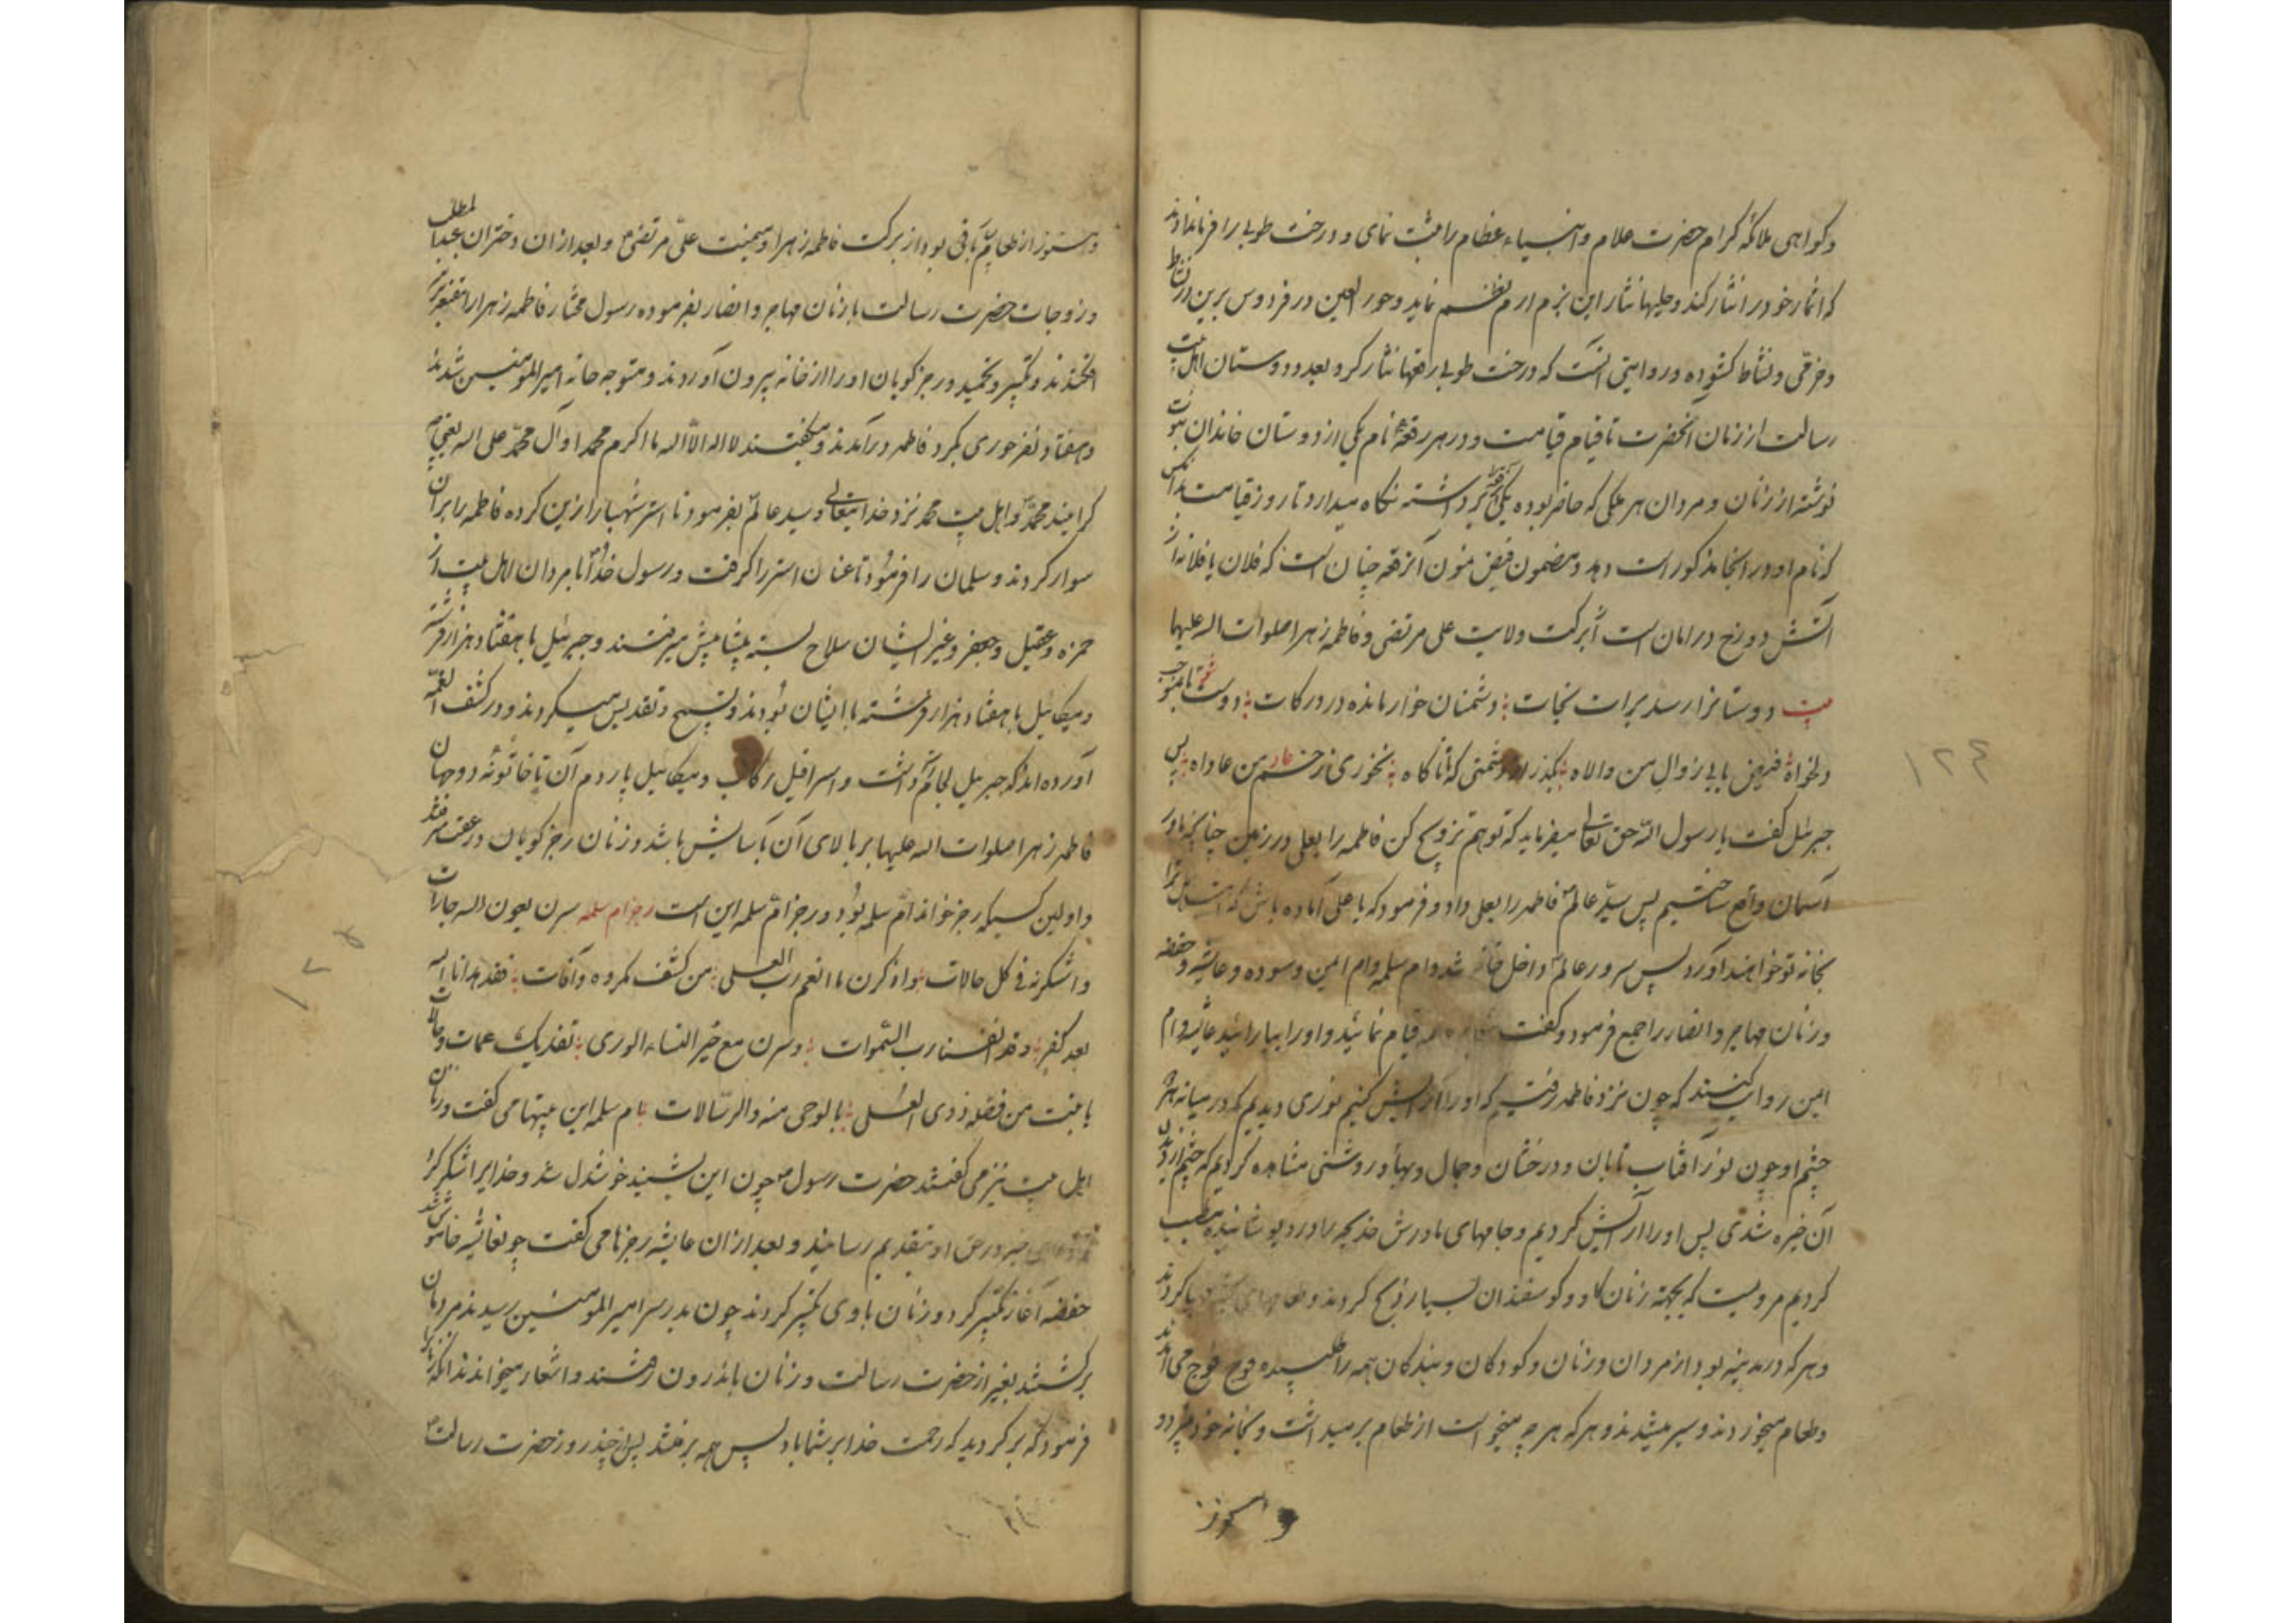 وکواهی ملائکه کرام حضرت علام و انبیاء عظام را ثبت نمای و درخت طوبی را فرمانداوند
که اثمار خود را نثار کند و حلیها نثار این بزم ارم نظم نماید و حور العین در فردوس برین در نشاط
و خرمی و نشاط کشوده و روایتی آنست که درخت طوبی رقعها نثار کرد بعدد دوستان اهل بیت
رسالت از زمان آنحضرت تا قیام قیامت و در هر رقعهٔ نام یکی از دوستان خاندان نبوت
نوشته از زنان و مردان هر ملکی که حاضر بوده یکی رقعه برداشته نکاه میدارد تا روز قیامت بدانکس
که نام او در انجا مذکور است دهد و مضمون فیض مشحون آنرقعه چنان است که فلان یا فلانه از
آتش دوزخ در امان است ببرکت ولایت علی مرتضی و فاطمه زهرا صلوات اله علیها
بیت دوستانرا رسد برات نجات دشمنان خوار مانده در درکات دوست
دلخواه بیابی ز وال من والاه بگذر از دشمنی که تا ناکاه نخوری زخم عاد من عاداه پس
جبرئیل کفت یا رسول الله حق تعالی میفرماید که تو هم تزویج کن فاطمه را بعلی در زمین چنانچه ما در
آسمان واقع ساختیم پس سید عالم فاطمه را بعلی داد و فرمود که یا علی آماده باش که اهل ترا
بخانه تو خواهند آورد پس سرور عالم داخل خانه شد و ام سلمه و ام ایمن و سوده و عایشه و حفصه
و زنان مهاجر و انصار را جمع فرمود و کفت قیام نمائید و او را بیارائید عایشه و ام
ایمن روایت کنند که چون نزد فاطمه رفتیم که او را آرایش کنیم نوری دیدیم که در میانه هر دو
چشم او چون نور آفتاب تابان و درخشان و جمال و بها و روشنی مشاهده کردیم که چشم از دیدن
آن خیره شدی پس او را آرایش کردیم و جامهای مادرش خدیجه را در او پوشانیده مطیب
کردیم مرویست که بجهته زنان کاو و کوسفندان بسیار ذبح کردند و طعامهای مهیا کردند
و هر که در مدینه بود از مردان و زنان و کودکان و بندکان همه را طلبیده فوج فوج می آمدند
و طعام میخوردند و سیر میشدند و هر که هر چه میخواست از طعام برمیداشت و بخانه خود میبرد و
و هنوز
و هنوز از طعام باقی بود از برکت فاطمه زهرا و میمنت علی مرتضی و بعد از ان دختران عبدالمطلب
و زوجات حضرت رسالت با زنان مهاجر و انصار بفرموده رسول مختار فاطمه زهرا را مقنعه بر سر
افکندند و تکبیر و تحمید و رجز کویان او را از خانه بیرون آوردند و متوجه خانه امیر المومنین شدند
و هفتاد نفر حوری بکرد فاطمه درآمدند و میکفتند لا اله الا اله ما اکرم محمد او آل محمد علی اله یعنی چه
کرامیند محمد و اهل بیت محمد نزد خدا تعالی و سید عالم بفرمود تا استر شهبا را زین کرده فاطمه را بر آن
سوار کردند و سلمان را فرمود تا عنان استر را کرفت و رسول خدا با مردان اهل بیت از
حمزه و عقیل و جعفر و غیر ایشان سلاح بسته پیشاپیش میرفتند و جبرئیل با هفتاد هزار فرشته
و میکائیل با هفتاد هزار فرشته با ایشان بودند و تسبیح و تقدیس میکردند و در کشف الغمه
آورده اند که جبرئیل لجام داشت و اسرافیل رکاب و میکائیل پاردم آن تا خاتونه دوجهان
فاطمه زهرا صلوات اله علیها بر بالای آن بآسایش باشد و زنان رجز کویان در عقب میرفتند
و اولین کسیکه رجز خواند ام سلمه بود و رجز ام سلمه این است رجز ام سلمه سرن بعون اله جارات
و اشکرنه فی کل حالات و اذکرن ما انعم رب العلی من کشف مکروه و آفات فقد هدانا اله
بعد کفر و قد انعشنا رب السموات و سرن مع خیر النساء الوری تفدیک عمات و خالات
یا بنت من فضله ذوی العلی بالوحی منه و الرسالات ام سلمه این بیتها می کفت و زنان
اهل بیت نیز می کفتند حضرت رسول چون این بشنید خوشدل شد و خدا را شکر کرد
خیر در حق او بتقدیم رسانید و بعد از ان عایشه رجزها می کفت چو عایشه خاموش شد
حفصه آغاز تکبیر کرد و زنان با وی تکبیر کردند چون بدر سرا امیر المومنین رسیدند مردمان
برکشتند بغیر از حضرت رسالت و زنان باندرون رفتند و اشعار میخواندند
فرمود که برکردید که رحمت خدا بر شما باد پس همه برفتند پس از چند روز حضرت رسالت